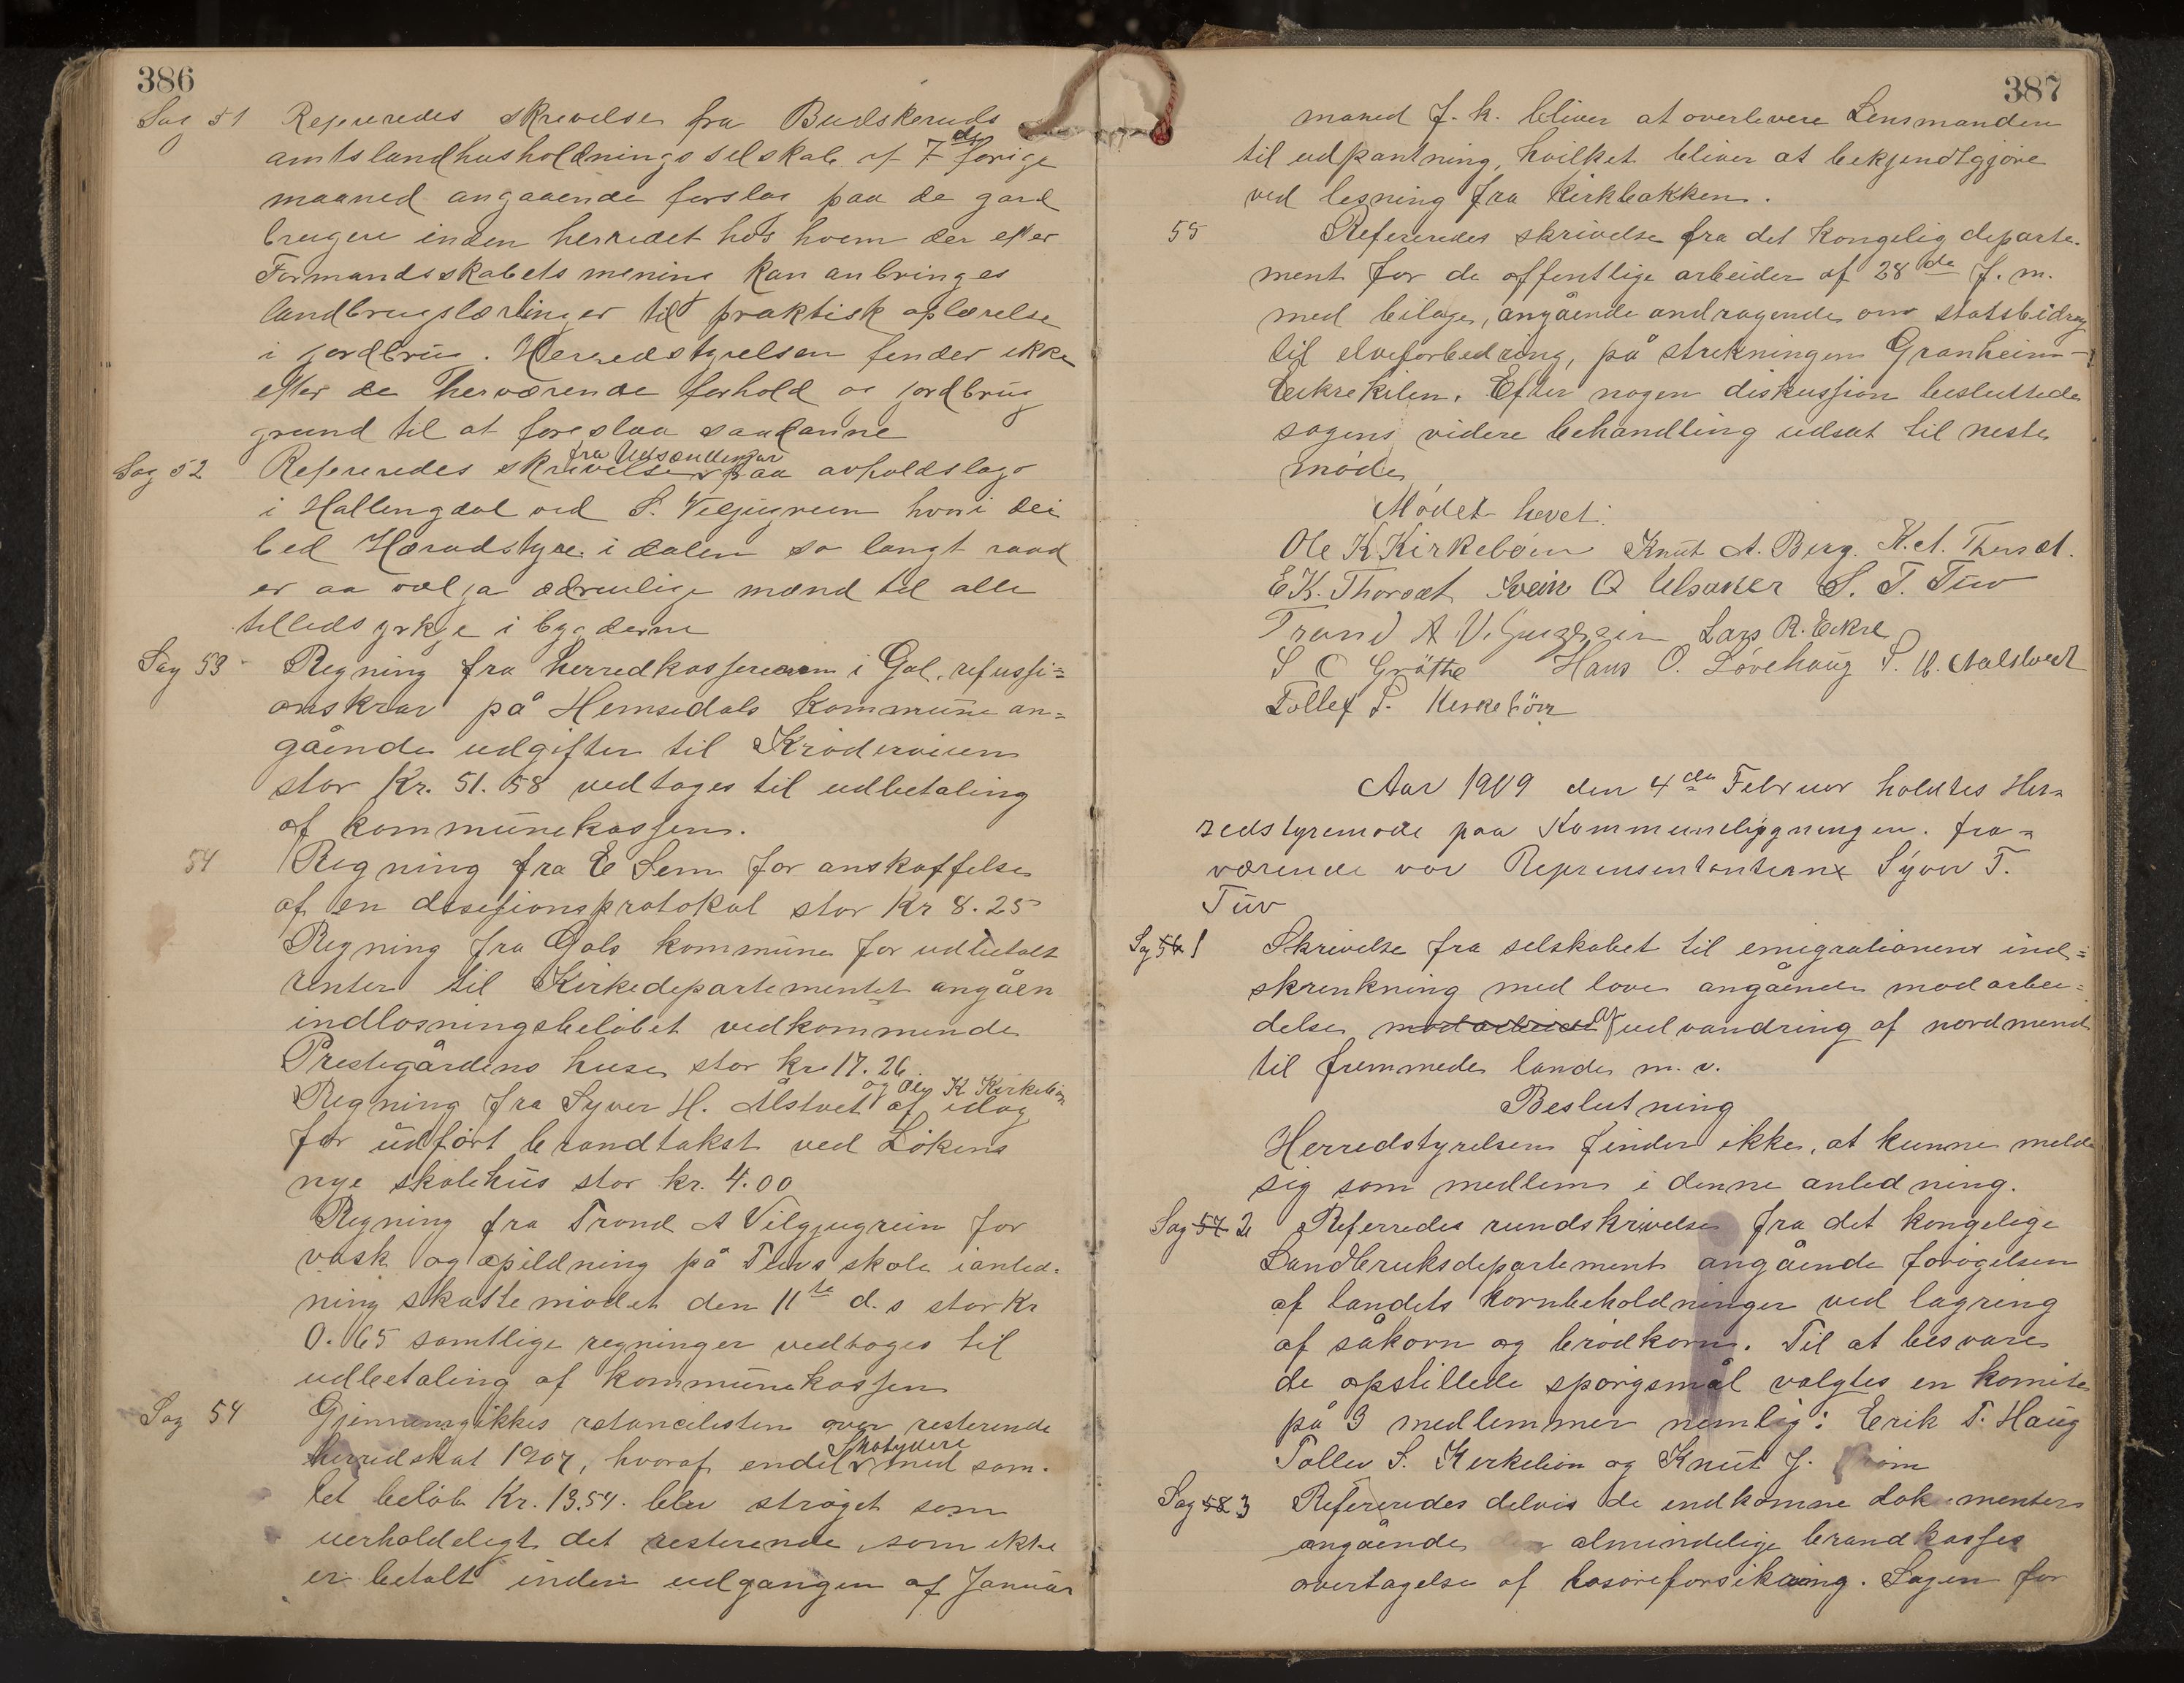 386
Sag 51 Refereredes skrivelse fra Budskeruds
amtslandhusholdningsselskab af 7 de forige
maaned angaaende forslag paa de gard
brugere inden herredet hos hvem der efter
Formandsskabets mening kan anbringes
landbrugslærlinger til praktisk oplærelse
i jordbrug. Herredstyrelsen finder ikke
efter de herværende forhold og jordbrug
grund til at foreslaa saadanne
fra Udsendingar
Sag 52 Refereredes skrivelse paa avholdslago
i Hallengdal ved S. Viljugrein hvori dei
bed Heradstyre i dalen so langt raad
er aa velja ædruelige mænd til alle
tilledsyrkje i bygderne
Sag 53 Regning fra herredkassereren i Gol, refussi=
onskrav på Hemsedals kommune an=
gående udgifter til Kröderveien
stor Kr. 51.58 vedtoges til udbetaling
af kommunekassen.
54 Regning fra E Sem for anskaffelse
af en desisionsprotokol stor Kr 8.25
Regning fra Gols kommune for udbetalt
renter til Kirkedepartementet angåen
indlosningsbelöbet vedkommende
Prestegårdens huse stor kr 17.26.
og Ole K Kirkebön
Regning fra Syver H. Ålstvet af idag
for udfört brandtakst ved Lökens
nye skolehus stor kr. 4.00
Regning fra Trond A Vilgjugrein for
vask og opildning på Tuvs skole ianled-
ning skattemödet den 11te d.s stor Kr
0.65 samtlige regninger vedtoges til
udbetaling af kommunekassen
Sag 54 Gjennemgikkes restancelisten over resterende
Skatydere
herredskat 1907, hvoraf endel med sam-
let belöb Kr. 13.54. blev ströget som
uerholdeligt det resterende, som ikke
er betalt inden udgangen af Januar
387
maned f. k. bliver at overlevere Lensmanden
til udpantning, hvilket bliver at bekjendtgjöre
ved lesning fra Kirkbakken.
55 Refereredes skrivelse fra det kongelig departe-
ment for de offentlige arbeider af 28 de f. m.
med bilage, angående andragende om statsbidrag
til elveforbedring, på strekningen Granheim-
Eikrekilen. Efter nogen diskussion besluttede
sagens videre behandling udsat til neste
möde
Mödet hevet.
Ole K Kirkeböen Knut A. Berg. K. A. Thorset.
E K. Thorset Svein O Ulsaker S. T. Tuv
Trond A Viljugrein Lars R. Eikre
S O Gröthe Hans O. Lövehaug S. H. Aalstveit
Tollef S. Kerkebön
Aar 1909 den 4de Februar holdtes Her=
redstyremöde paa Kommunelögningen. fra=
værende var Reprensentanterne Syver T.
Tuv
Sag 56 1 Skrivelse fra selskabet til emigrationens ind=
skrenkning med love angående modarbei=
delse modarbeide af udvandring af nordmend
til fremmede lande m. v.
Beslutning
Herredstyrelsen finder ikke, at kunne melde
sig som medlem i denne anledning.
Sag 57 2 Referredes rundskrivelse fra det kongelige
Landbruksdepartement angående forögelsen
af landets kornbeholdninger ved lagring
af såkorn og brödkorn. Til at besvare
de opstillede spörgsmål valgtes en komite
på 3 medlemmer nemlig: Erik T. Haug
Tollev S. Kerkebön og Knut J.
Sag 58 3 Refereredes delvis de indkomne dokumenter
angående den almindelige brandkasses
overtagelse af losöreforsikring. Sagen for